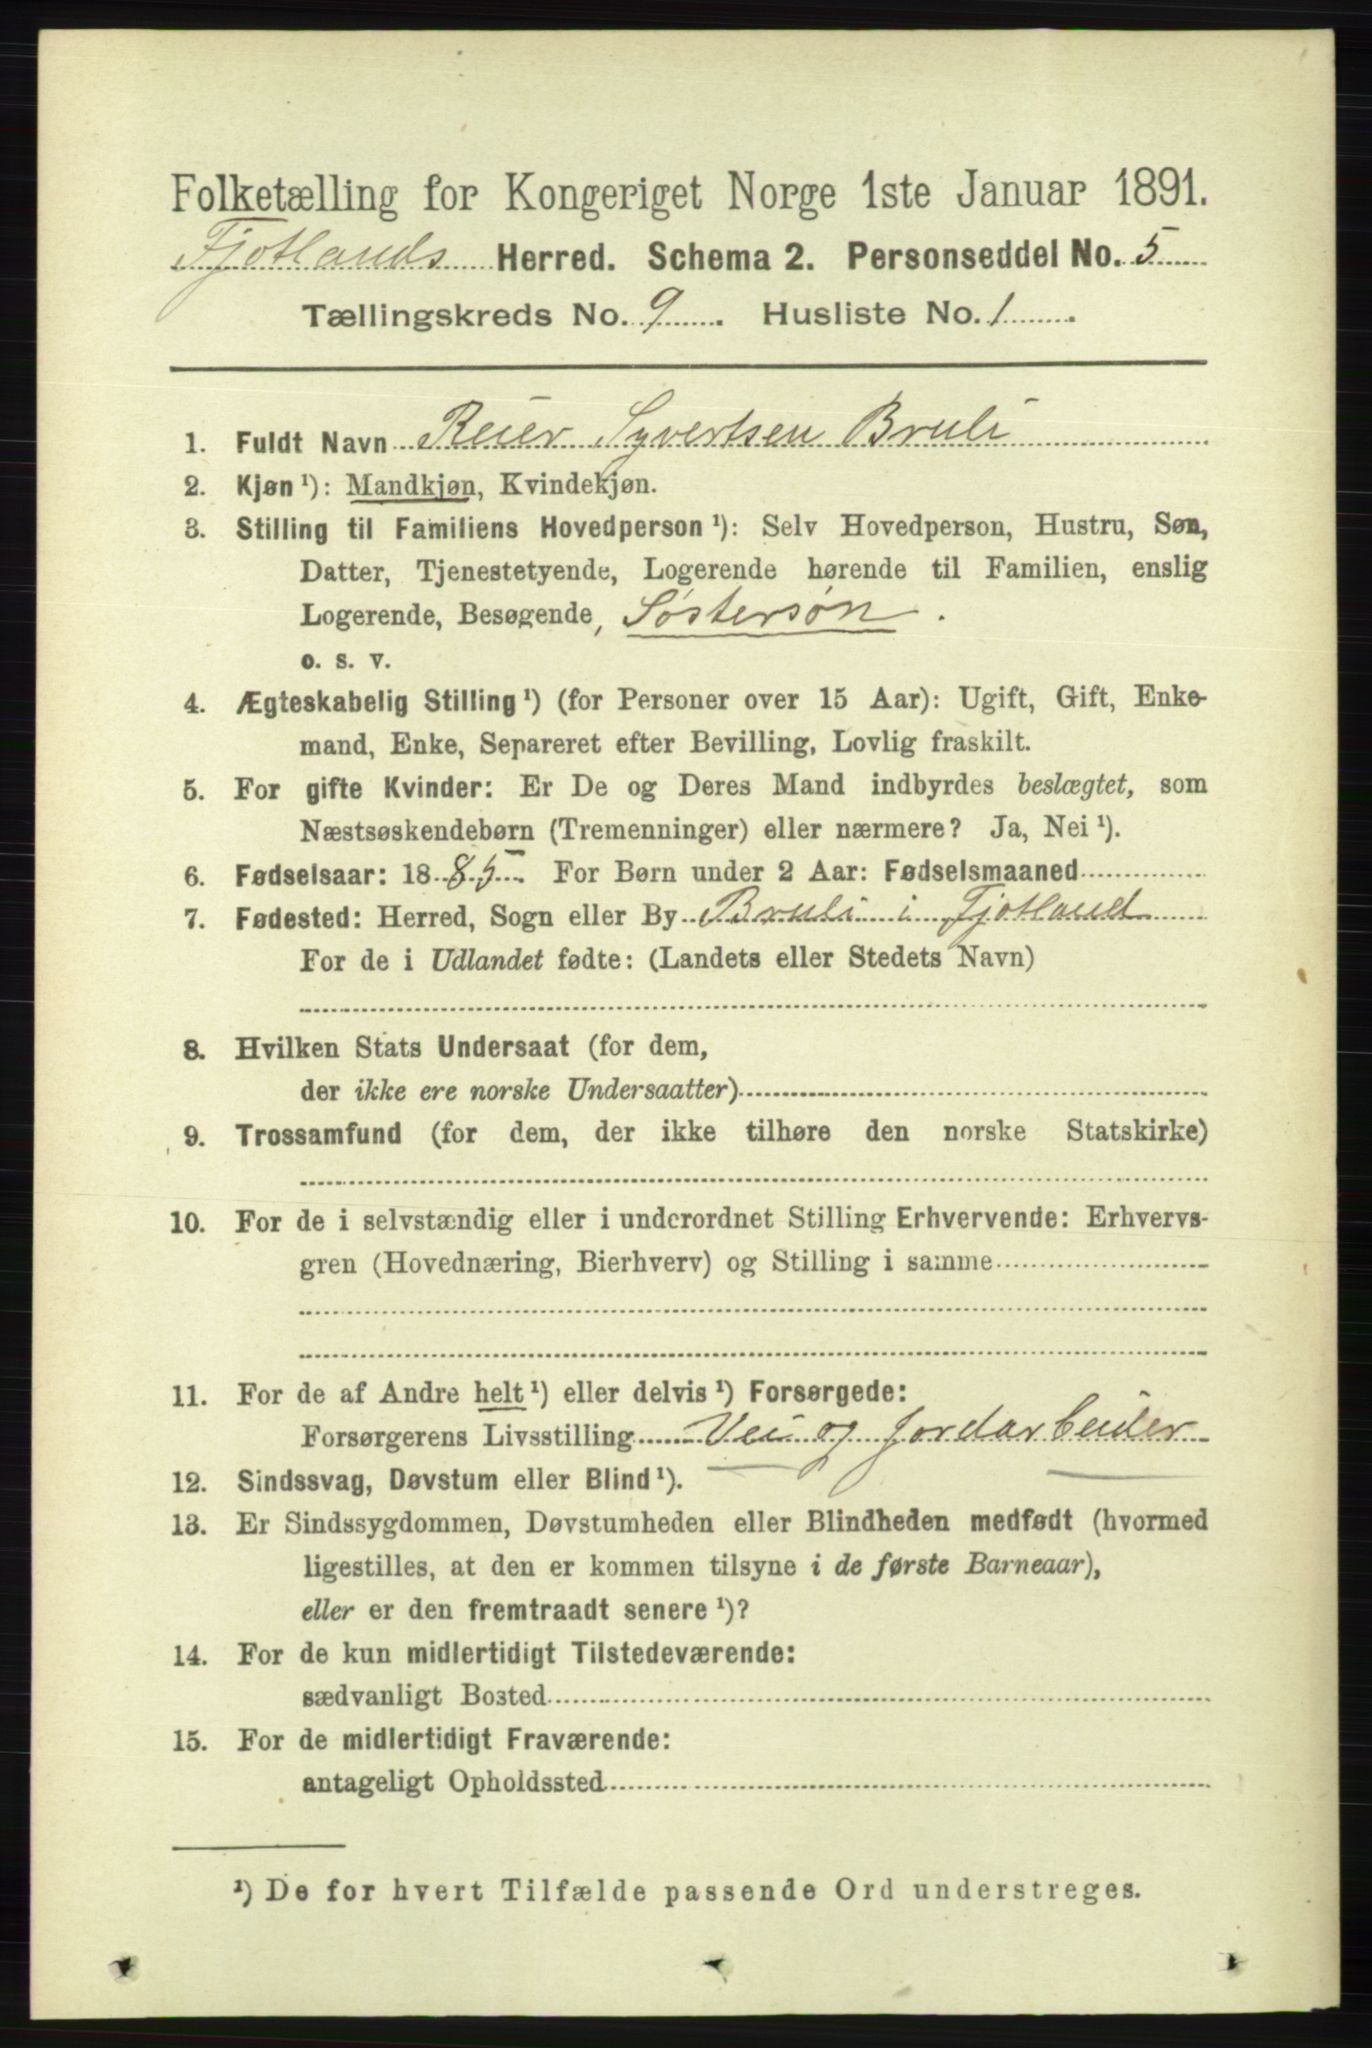 Folketælling for Kongeriget Norge 1ste Januar 1891.
Fjotlands Herred. Schema 2. Personseddel No. 5
Tællingskreds No. 9. Husliste No. 1.
1. Fuldt Navn Reier Syvertsen Bruli
2. Kjøn ¹): Mandkjøn, Kvindekjøn.
3. Stilling til Familiens Hovedperson ¹): Selv Hovedperson, Hustru, Søn,
Datter, Tjenestetyende, Logerende hørende til Familien, enslig
Logerende, Besøgende, Søstersøn.
o. s. v.
4. Ægteskabelig Stilling ¹) (for Personer over 15 Aar): Ugift, Gift, Enke-
mand, Enke, Separeret efter Bevilling, Lovlig fraskilt.
5. For gifte Kvinder: Er De og Deres Mand indbyrdes beslægtet, som
Næstsøskendebørn (Tremenninger) eller nærmere? Ja, Nei ¹).
6. Fødselsaar: 1885 For Børn under 2 Aar: Fødselsmaaned
7. Fødested: Herred, Sogn eller By Bruli i Fjotland
For de i Udlandet fødte: (Landets eller Stedets Navn)
8. Hvilken Stats Undersaat (for dem,
der ikke ere norske Undersaatter)
9. Trossamfund (for dem, der ikke tilhøre den norske Statskirke)
10. For de i selvstændig eller i underordnet Stilling Erhvervende: Erhvervs-
gren (Hovednæring, Bierhverv) og Stilling i samme
11. For de af Andre helt ¹) eller delvis ¹) Forsørgede:
Forsørgerens Livsstilling Vei og Jordarbeider
12. Sindssvag, Døvstum eller Blind ¹).
13. Er Sindssygdommen, Døvstumheden eller Blindheden medfødt (hvormed
ligestilles, at den er kommen tilsyne i de første Barneaar),
eller er den fremtraadt senere ¹)?
14. For de kun midlertidigt Tilstedeværende:
sædvanligt Bosted
15. For de midlertidigt Fraværende:
antageligt Opholdssted
¹) De for hvert Tilfælde passende Ord understreges.